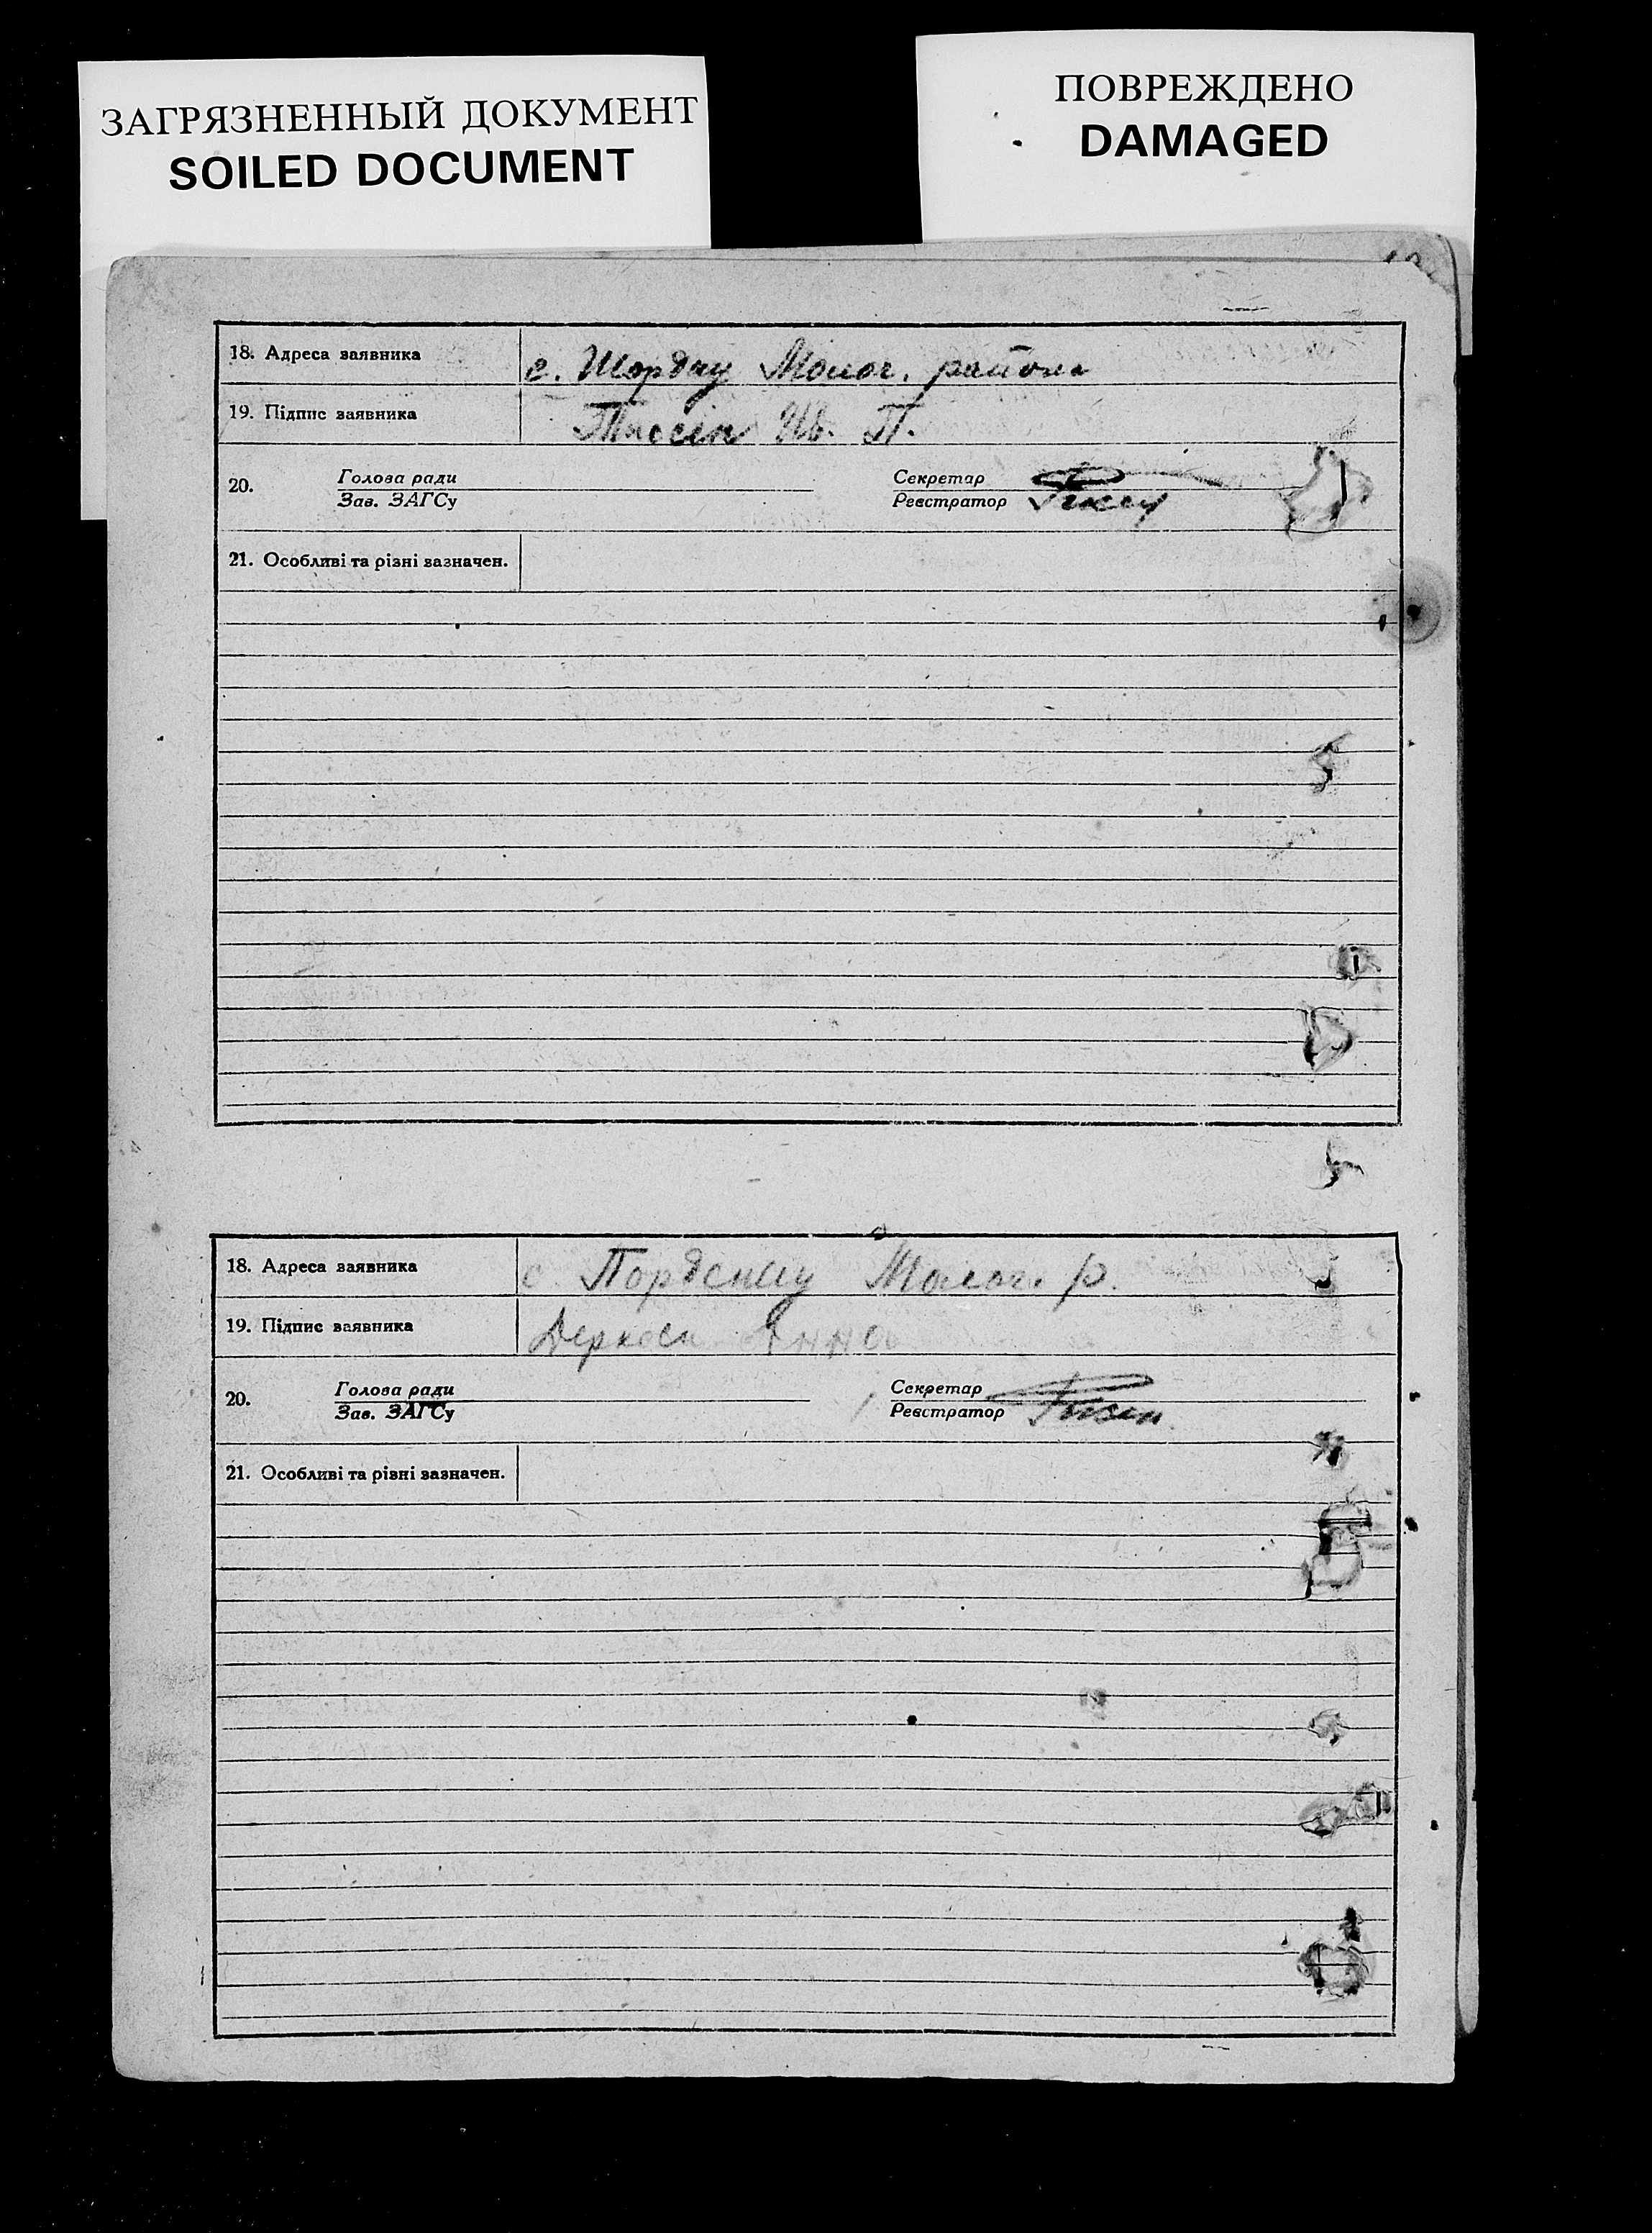 ЗАГРЯЗНЕННЫЙ ДОКУМЕНТ
SOILED DOCUMENT
ПОВРЕЖДЕНО
DAMAGED
18. Адреса заявника с. Молог. района
19. Підпис заявника Ив. П.
20. Голова ради Секретар
Зав. ЗАГСу Реєстратор
21. Особливі та різні зазначен.
18. Адреса заявника с. Молог. р.
19. Підпис заявника Анна
20. Голова ради Секретар
Зав. ЗАГСу Реєстратор
21. Особливі та різні зазначен.